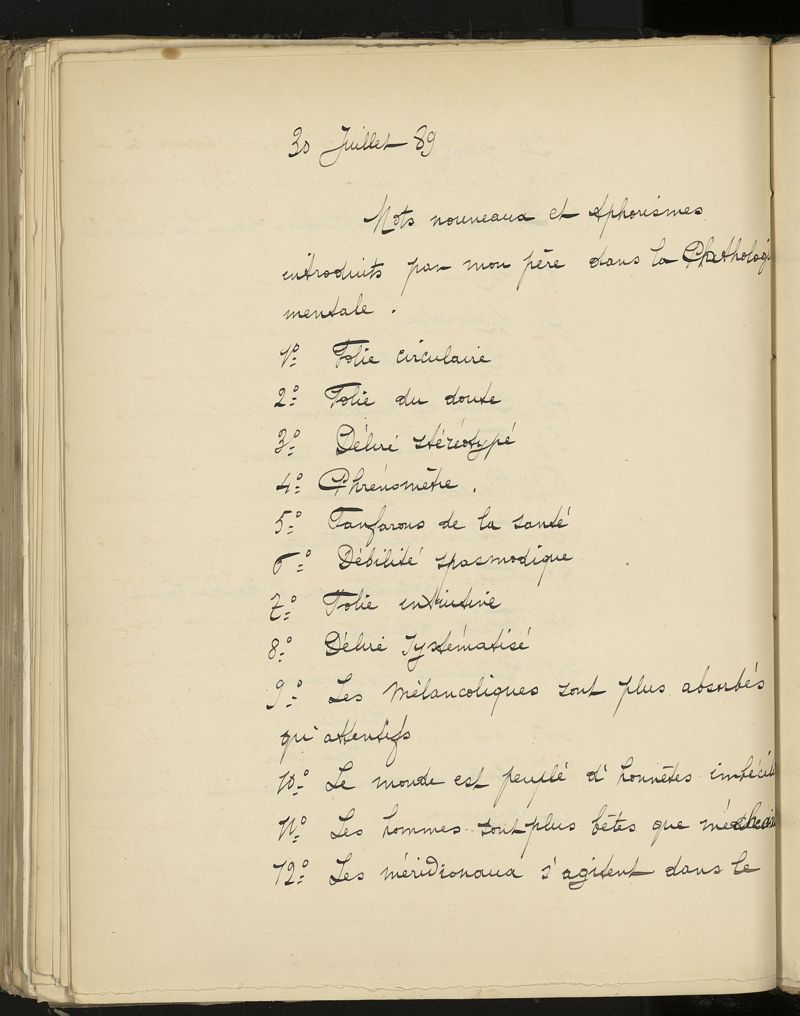 30 Juillet 89
Mots nouveaux et Aphorismes
introduits par mon père dans la Phathologi
mentale .
1º Folie circulaire
2º Folie du doute
3º Délire stéréotypé
4º Phrénomètre .
5º Fanfarons de la santé
6º Débilité spasmodique
7º Folie intuitive
8º Délire systématisé
9º Les Mélancoliques sont plus absorbés
qu'attentifs
10º Le monde est peuplé d'honnêtes imbécil
11º Les hommes sont plus bêtes que méchan
12º Les méridionaux s'agitent dans le